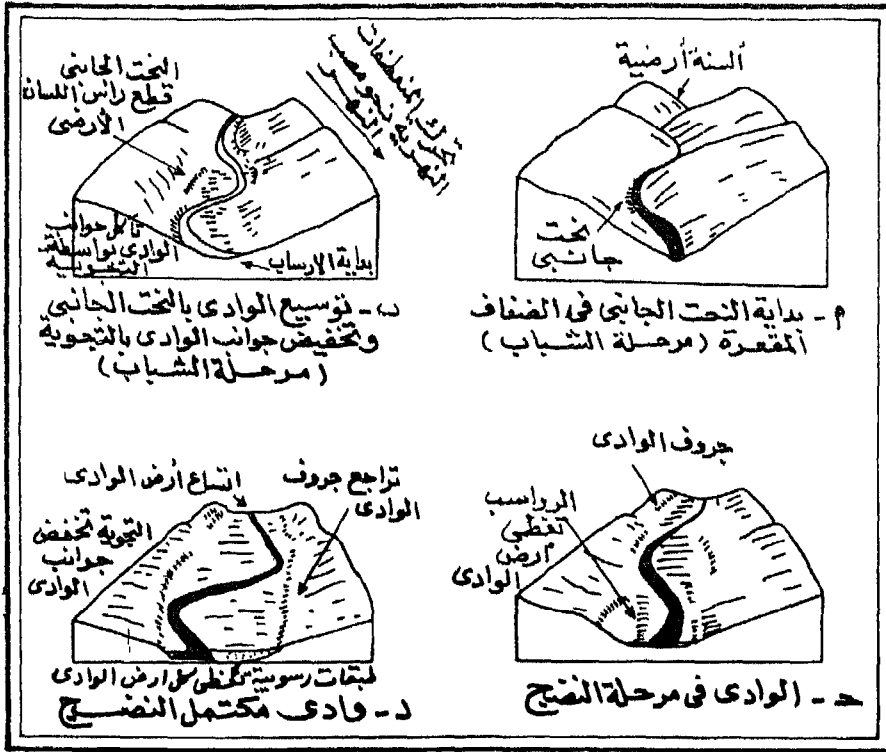 ألسنة أرضية
نحت
جانبى
أ - بداية النحت الجانبى فى الضفاف
المقعرة (مرحلة الشباب)
النحت الجانبى
قطع رأس اللسان
الأرضى
تحرك المنعطفات
النهرية نحو مصب
النهر
تآكل جوانب
الوادى بواسطة
التجوية
بداية الارساب
ب - توسيع الوادى بالنحت الجانبى
وتخفيض جوانب الوادى بالتجوية
(مرحلة الشباب)
جروف الوادى
الرواسب
تغطى
أرض
الوادى
حـ - الوادى فى مرحلة النضج
اتساع أرض الوادى
تراجع جروف
الوادى
التجوية تخفض
جوانب
الوادى
طبقات رسوبية تغطى كل ارض الوادى
د - وادى مكتمل النضج